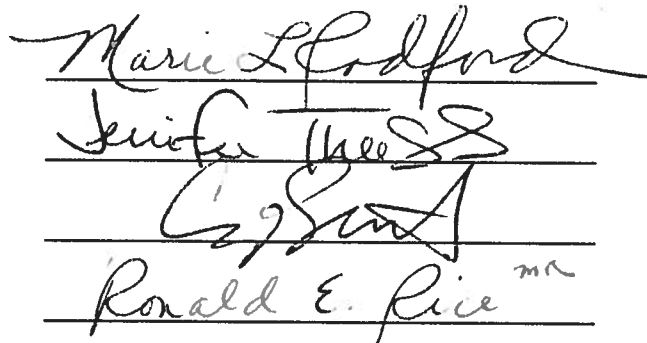 Marie L Radford
Jennifer Theiss

Ronald E. Rice MR